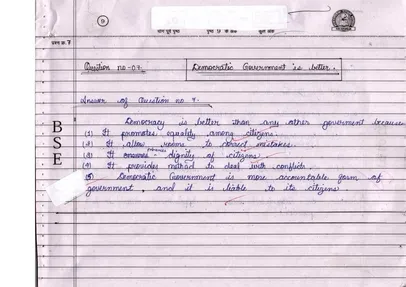 9
प्रश्न क्र. 7
Question no-07.
Democratic Government is better.
Answer of Question no 7.
Democracy is better than any other government because
(1) It promotes equality among citizens.
(2) It allow rooms to correct mistakes.
(3) It dignity of citizens
(4) It provides method to deal with conflicts.
(5) Democratic Government is more accountable form of
government, and it is liable to its citizens
B
S
E